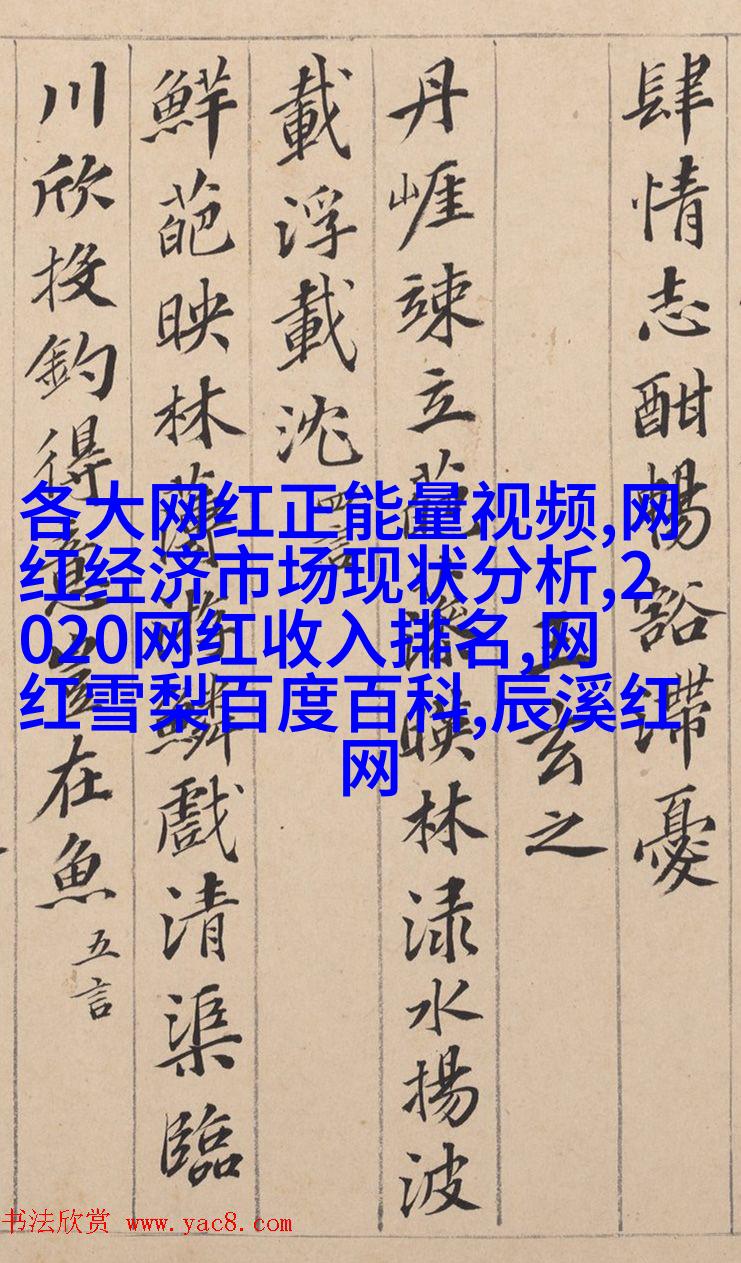 肆情志酣暢豁滯憂
王玄之
丹崕竦立葩藻暎林渌水揚波
載浮載沈 四言
鮮葩映林薄游鱗戲清渠臨
川欣投釣得意豈在魚 五言
各大网红正能量视频,网
红经济市场现状分析,2
020网红收入排名,网
红雪梨百度百科,辰溪红
网
书法欣赏 www.yac8.com